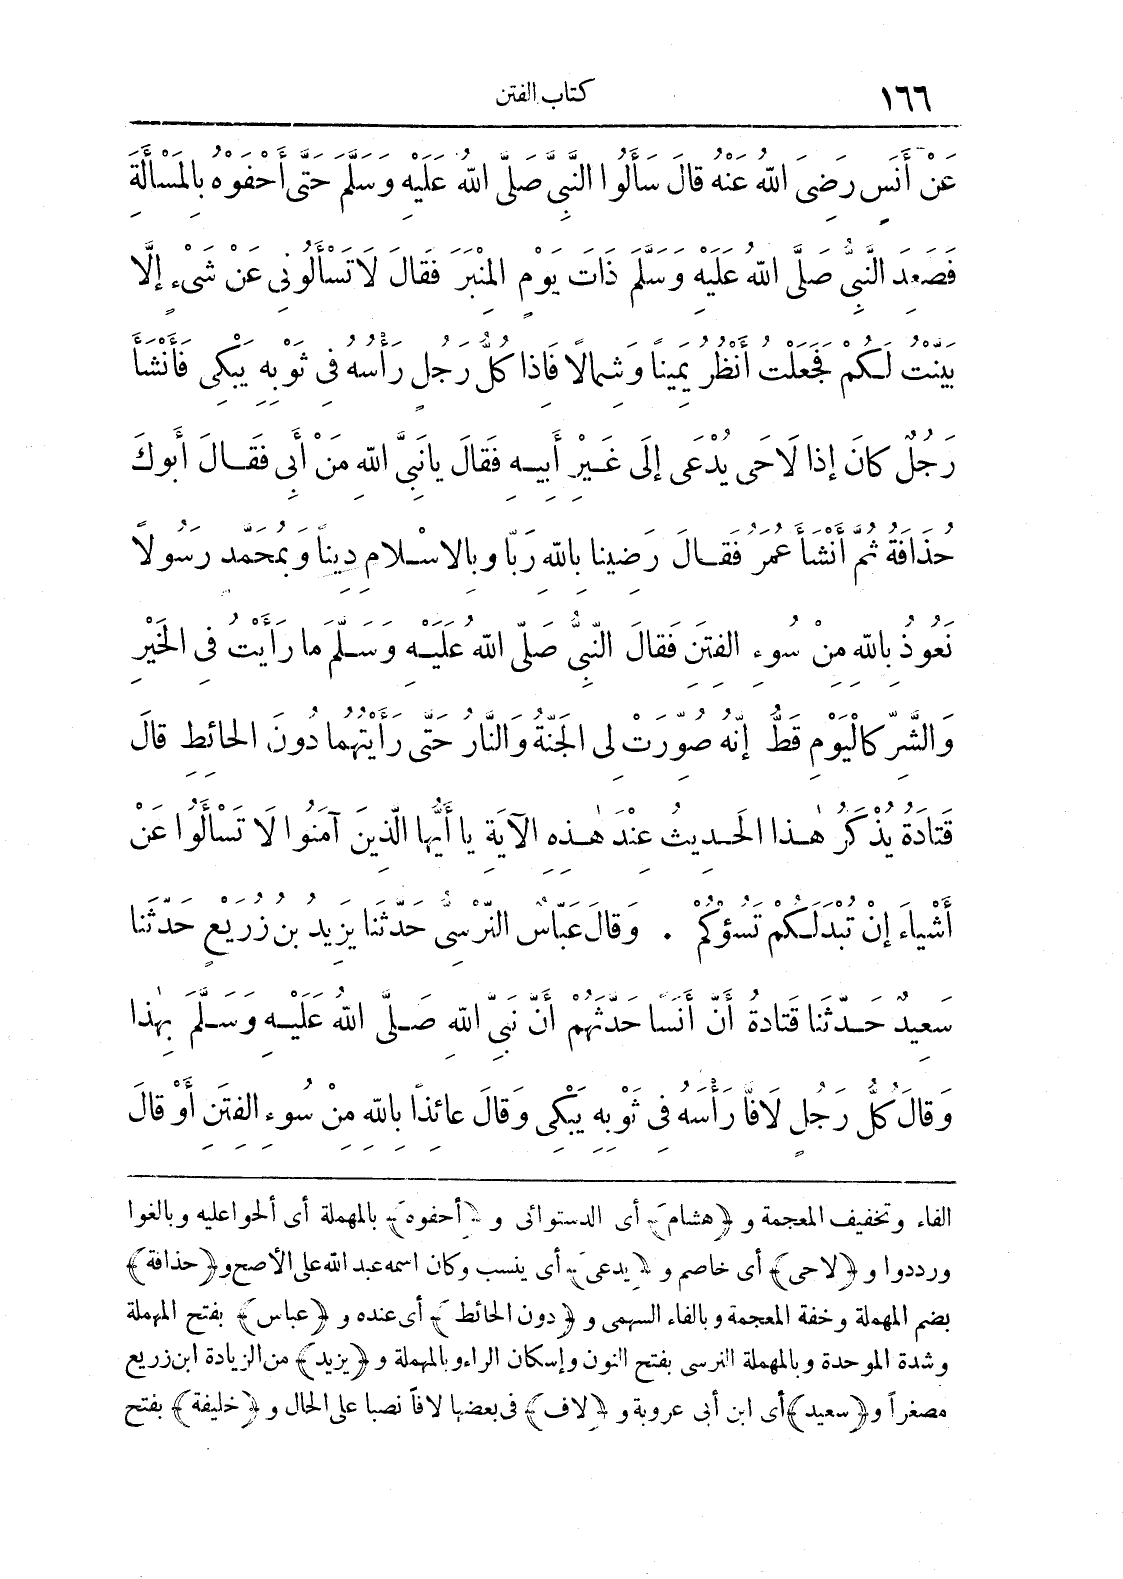 ١٦٦ كتاب الفتن
عَنْ أَنَسٍ رَضِىَ اللهُ عَنْهُ قالَ سَأَلُوا النَّبِىَّ صَلَّى اللهُ عَلَيْهِ وَسَلَّمَ حَتَّى أَحْفَوْهُ بِالْمَسْأَلَةِ
فَصَعِدَ النَّبِىُّ صَلَّى اللهُ عَلَيْهِ وَسَلَّمَ ذَاتَ يَوْمٍ الْمِنْبَرَ فَقالَ لَا تَسْأَلُونِى عَنْ شَىْءٍ إِلَّا
بَيَّنْتُ لَكُمْ فَجَعَلْتُ أَنْظُرُ يَمِيناً وَشِمالًا فَاذا كُلُّ رَجُلٍ رَأْسُهُ فِى ثَوْبِهِ يَبْكِى فَأَنْشَأَ
رَجُلٌ كانَ إِذا لَاحَى يُدْعَى إِلَى غَيْرِ أَبِيهِ فَقالَ يا نَبِىَّ اللهِ مَنْ أَبِى فَقالَ أَبُوكَ
حُذَافَةُ ثُمَّ أَنْشَأَ عُمَرُ فَقالَ رَضِينا بِاللهِ رَبّاً وبِالاسْلامِ دِيناً وَبِمُحَمَّدٍ رَسُولاً
نَعُوذُ بِاللهِ مِنْ سُوءِ الفِتَنِ فَقالَ النَّبِىُّ صَلَّى اللهُ عَلَيْهِ وَسَلَّمَ ما رَأَيْتُ فِى الخَيْرِ
وَالشَّرِّ كالْيَوْمِ قَطُّ إِنَّهُ صُوِّرَتْ لِى الجَنَّةُ وَالنَّارُ حَتَّى رَأَيْتُهُما دُونَ الحائِطِ قالَ
قَتادَةُ يُذْكَرُ هٰذا الحَدِيثُ عِنْدَ هٰذِهِ الآيَةِ يا أَيُّها الَّذِينَ آمَنُوا لَا تَسْأَلُوا عَنْ
أَشْياءَ إِنْ تُبْدَ لَكُمْ تَسُؤْكُمْ . وَقالَ عَبَّاسٌ النَّرْسِىُّ حَدَّثَنا يَزِيدُ بن زُرَيْعٍ حَدَّثَنا
سَعِيدٌ حَدَّثَنا قَتادَةُ أَنَّ أَنَسًا حَدَّثَهُمْ أَنَّ نَبِىَّ اللهِ صَلَّى اللهُ عَلَيْهِ وَسَلَّمَ بِهٰذا
وَقالَ كُلُّ رَجُلٍ لَافًّا رَأْسَهُ فِى ثَوْبِهِ يَبْكِى وَقالَ عائِذًا بِاللهِ مِنْ سُوءِ الفِتَنِ أَوْ قالَ
الفاء وتخفيف المعجمة و ﴿هشام﴾ أى الدستوائى و ﴿أحفوه﴾ بالمهملة أى ألحوا عليه وبالغوا
ورددوا و ﴿لاحى﴾ أى خاصم و ﴿يدعى﴾ أى ينسب وكان اسمه عبد الله على الأصح و ﴿حذافة﴾
بضم المهملة وخفة المعجمة وبالفاء السهمى و ﴿دون الحائط﴾ أى عنده و ﴿عباس﴾ بفتح المهملة
وشدة الموحدة وبالمهملة النرسى بفتح النون وإسكان الراء وبالمهملة و ﴿يزيد﴾ من الزيادة ابن زريع
مصغراً و ﴿سعيد﴾ أى ابن أبى عروبة و ﴿لاف﴾ فى بعضها لافاً نصبا على الحال و ﴿خليفة﴾ بفتح